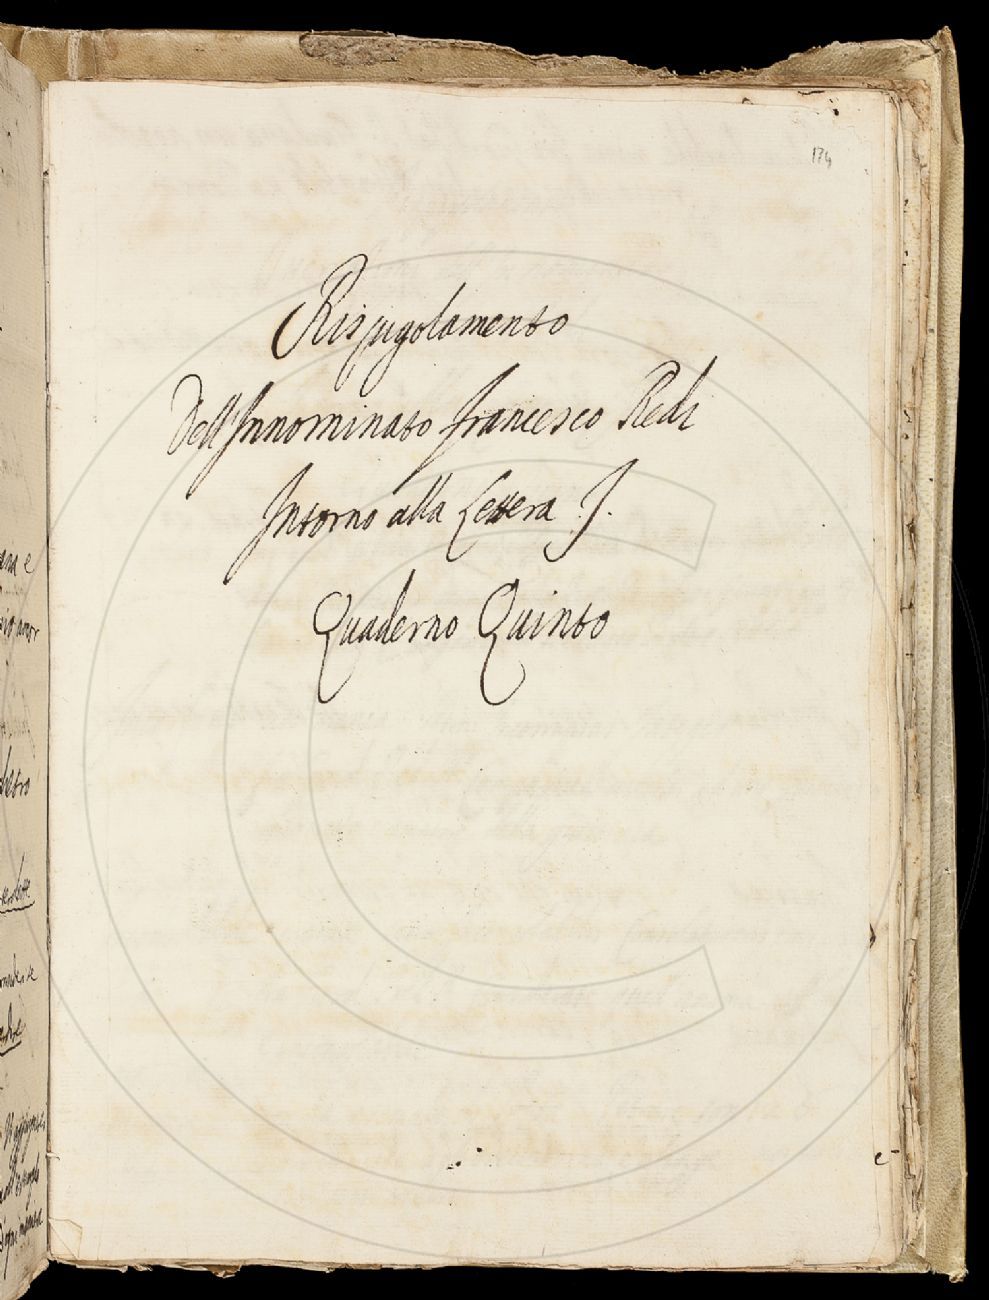 174
Rispigolamento
Dell'Innominato Francesco Redi
Intorno alla Lettera I.
Quaderno Quinto